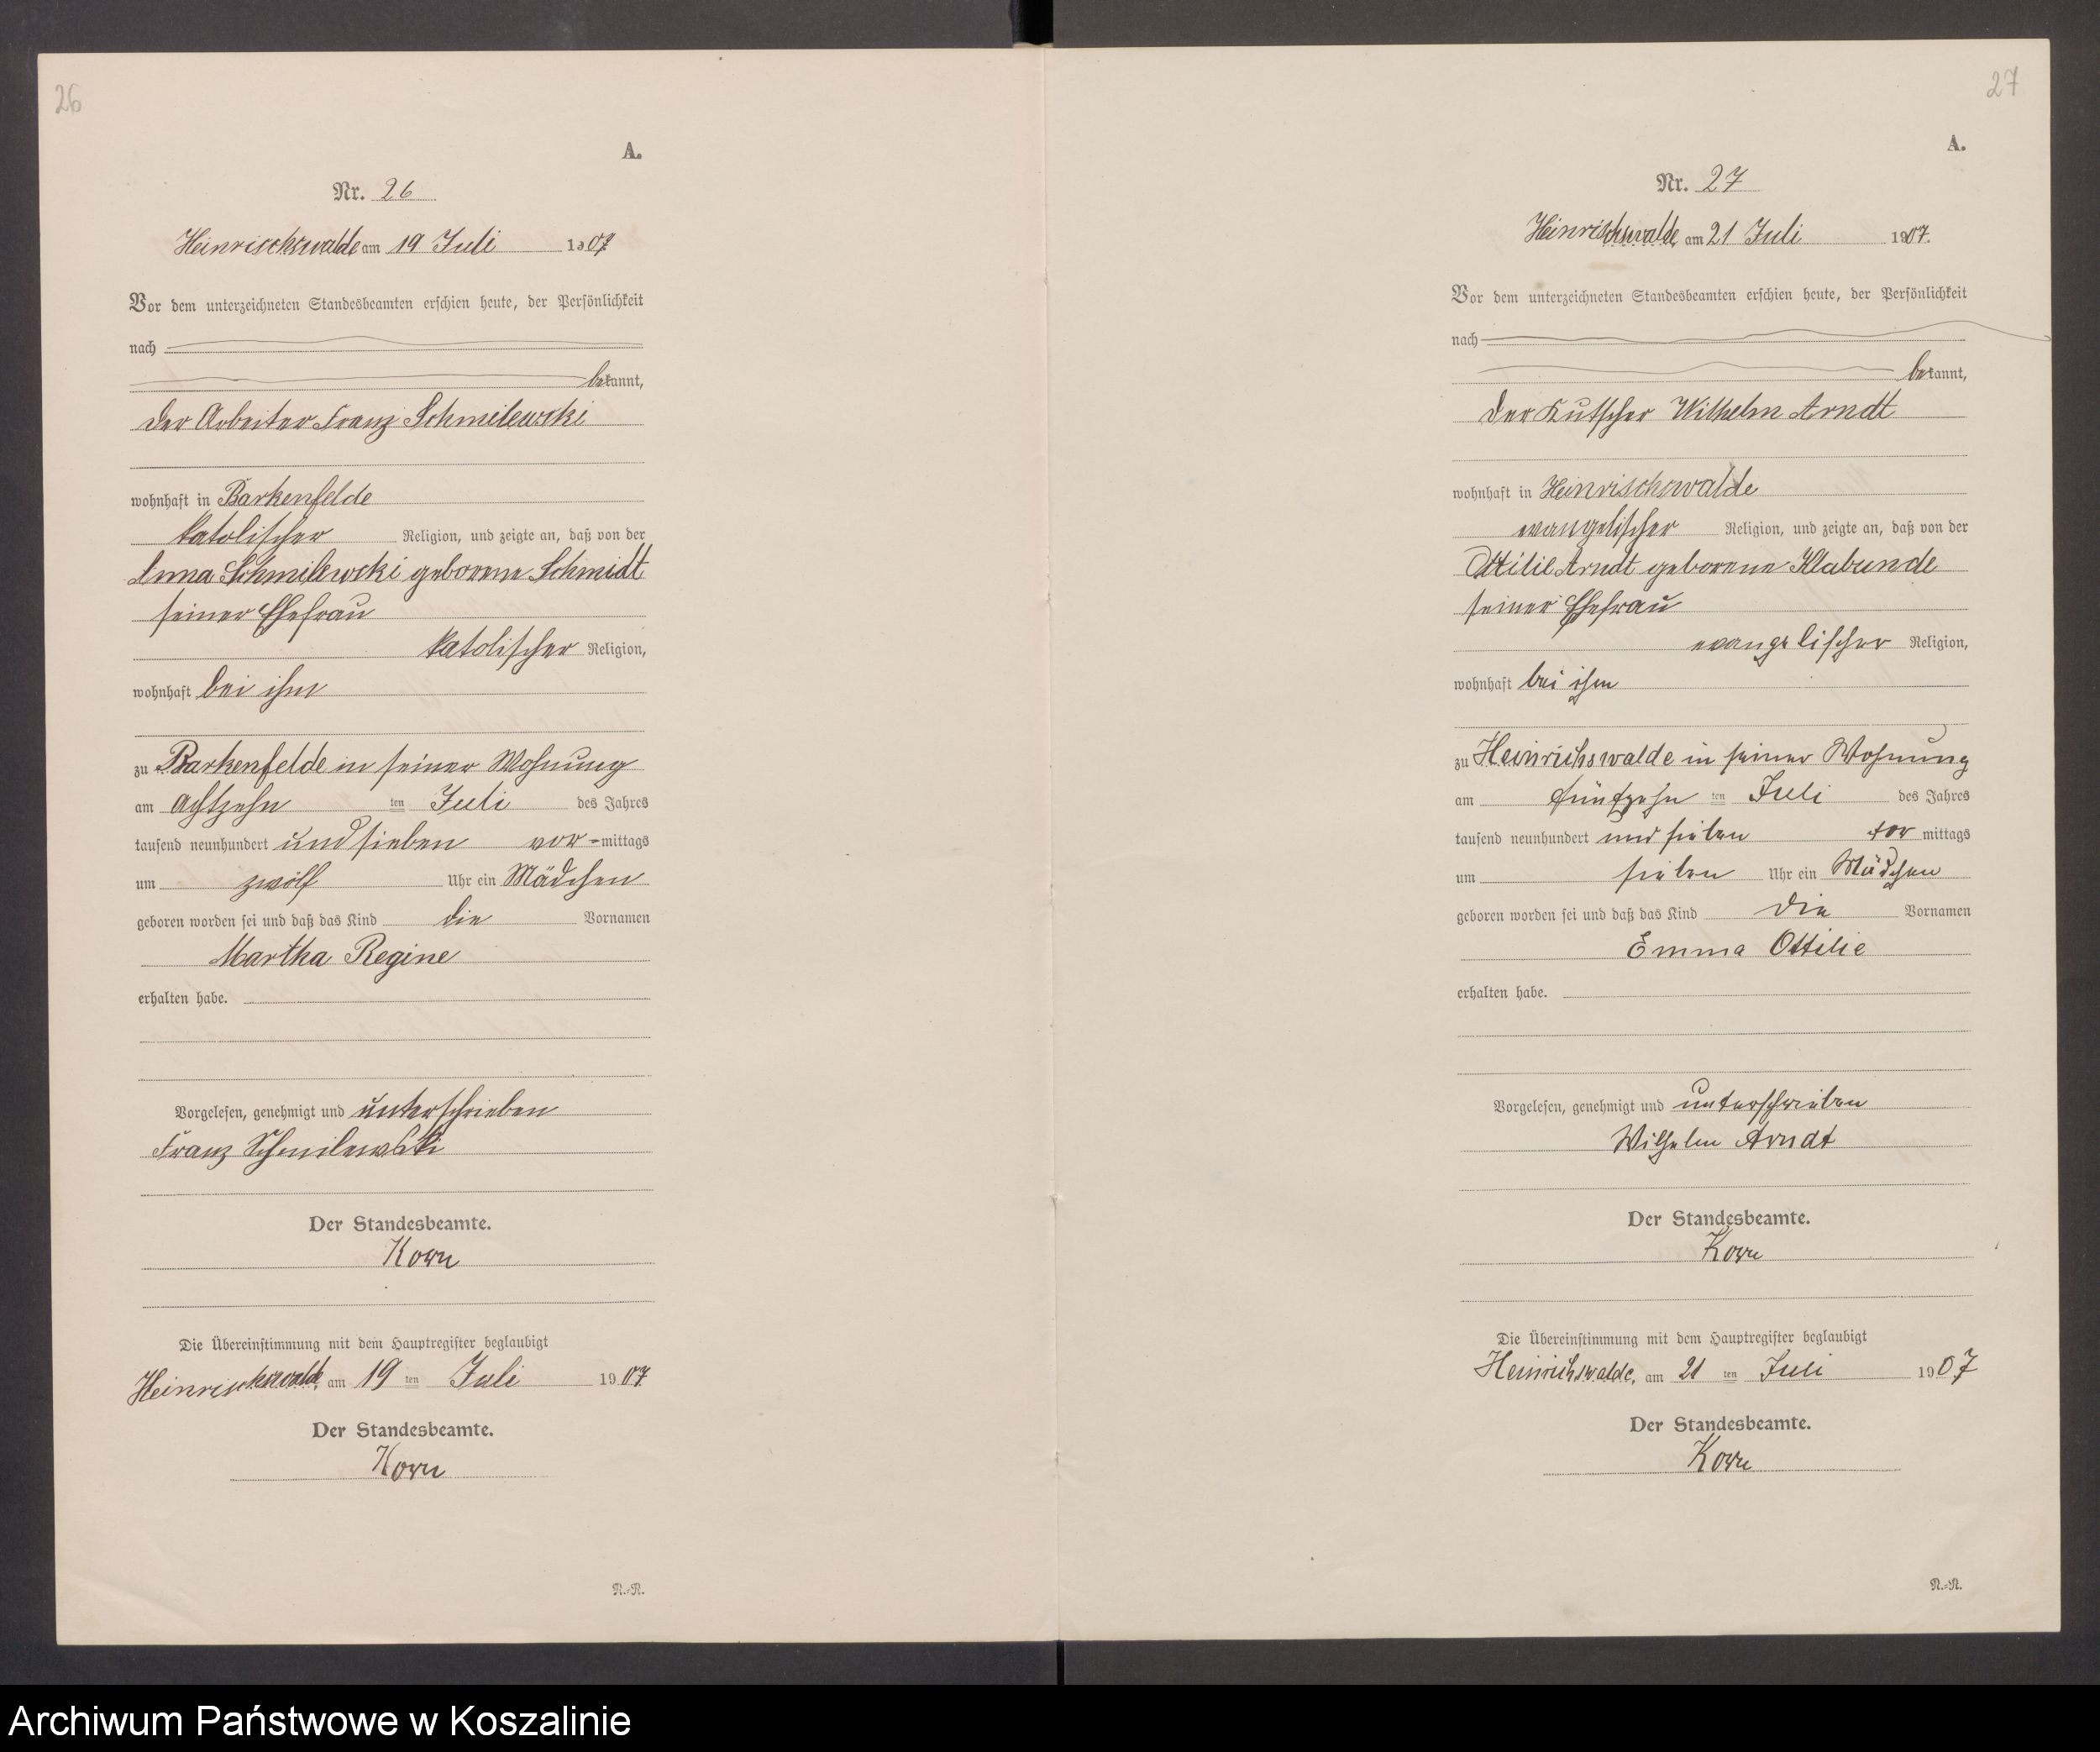 26
A.
Nr. 26
Heinrischswalde am 19 Juli 1907
Vor dem unterzeichneten Standesbeamten erschien heute, der Persönlichkeit
nach
bekannt,
der Arbeiter Franz Schmilewski
wohnhaft in Barkenfelde
katolischer Religion, und zeigte an, daß von der
Anna Schmilewski geborene Schmidt
seiner Ehefrau
katolischer Religion,
wohnhaft bei ihm
zu Barkenfelde in seiner Wohnung
am achtzehn ten Juli des Jahres
tausend neunhundert und sieben vor-mittags
um zwölf Uhr ein Mädchen
geboren worden sei und daß das Kind die Vornamen
Martha Regine
erhalten habe.
Vorgelesen, genehmigt und unterschrieben
Franz Schmilewski
Der Standesbeamte.
Korn
Die Übereinstimmung mit dem Hauptregister beglaubigt
Heinrischswalde, am 19 ten Juli 1907
Der Standesbeamte.
Korn
N.-N.
27
A.
Nr. 27
Heinrischswalde, am 21 Juli 1907.
Vor dem unterzeichneten Standesbeamten erschien heute, der Persönlichkeit
nach
bekannt,
der Kutscher Wilhelm Arndt
wohnhaft in Heinrischswalde
evangelischer Religion, und zeigte an, daß von der
Ottilie Arndt geborene Klabunde
seiner Ehefrau
evangelischer Religion,
wohnhaft bei ihm
zu Heinrichswalde in seiner Wohnung
am fünfzehn ten Juli des Jahres
tausend neunhundert und sieben vor mittags
um sieben Uhr ein Mädchen
geboren worden sei und daß das Kind die Vornamen
Emma Ottilie
erhalten habe.
Vorgelesen, genehmigt und unterschrieben
Wilhelm Arndt
Der Standesbeamte.
Korn
Die Übereinstimmung mit dem Hauptregister beglaubigt
Heinrichswalde, am 21 ten Juli 1907
Der Standesbeamte.
Korn
N.-N.
Archiwum Państwowe w Koszalinie